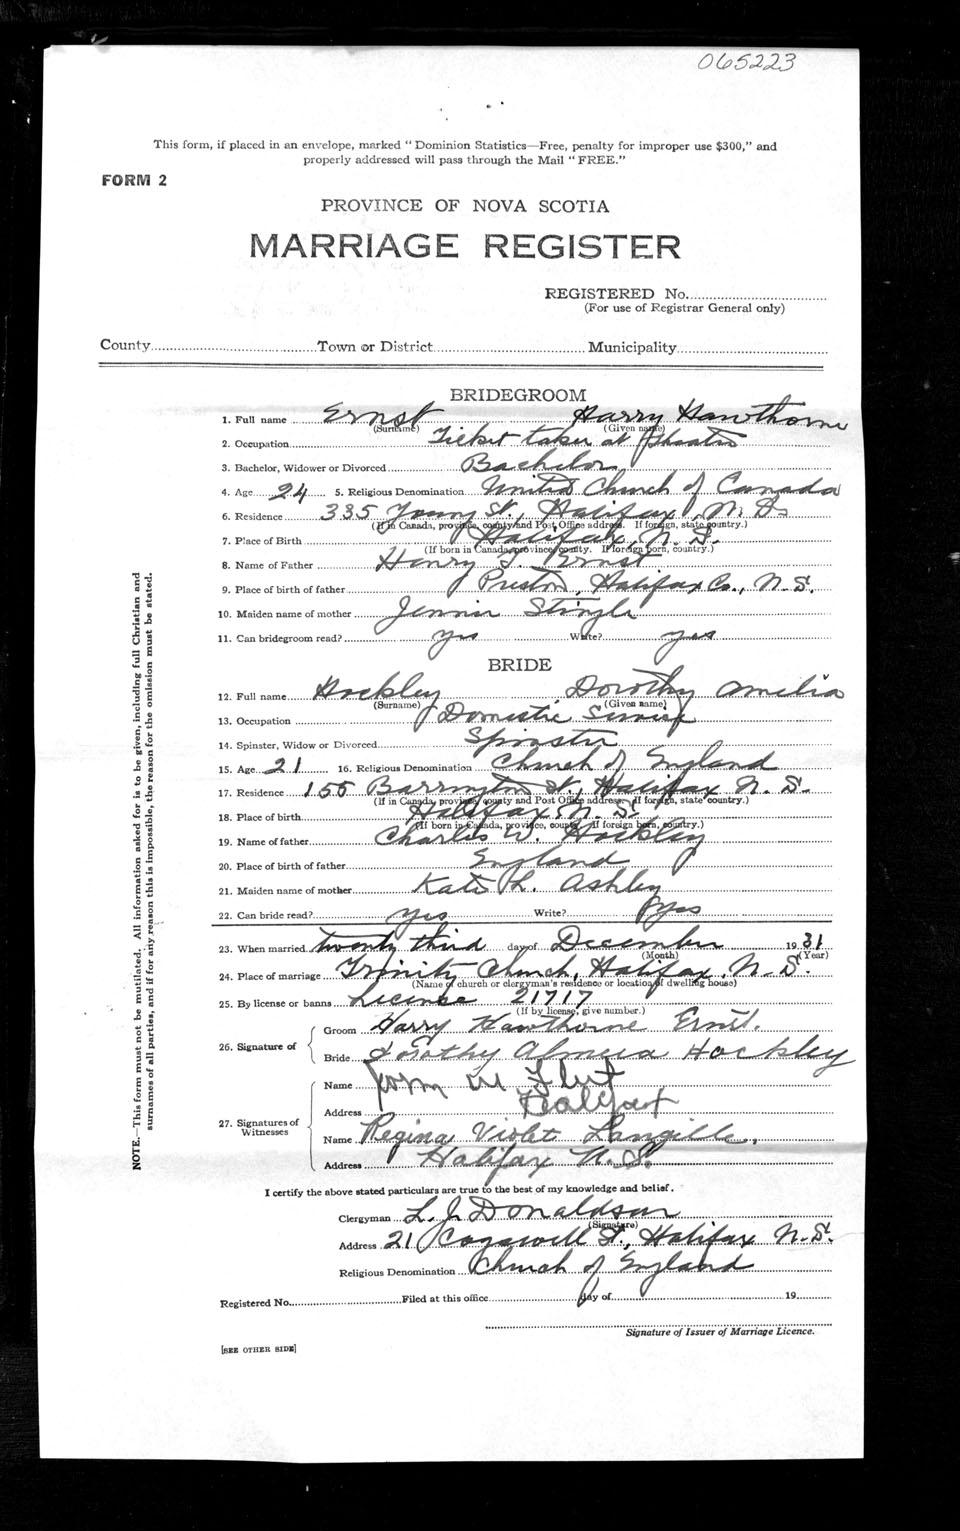 065223
This form, if placed in an envelope, marked "Dominion Statistics—Free, penalty for improper use $300," and
properly addressed will pass through the Mail "FREE."
FORM 2
PROVINCE OF NOVA SCOTIA
MARRIAGE REGISTER
REGISTERED No.
(For use of Registrar General only)
County Town or District Municipality
BRIDEGROOM
1. Full name Ernst Harry Hawthorne
(Surname) (Given name)
2. Occupation Ticket taker at Theatre
3. Bachelor, Widower or Divorced Bachelor
4. Age 24 5. Religious Denomination United Church of Canada
6. Residence 335 Young St., Halifax, N.S.
(If in Canada, province, county and Post Office address. If foreign, state country.)
7. Place of Birth Halifax, N.S.
(If born in Canada, province, county. If foreign born, country.)
8. Name of Father Henry Ernst
9. Place of birth of father Preston, Halifax Co., N.S.
10. Maiden name of mother Jennie Stingle
11. Can bridegroom read? yes Write? yes
BRIDE
12. Full name Hockley Dorothy Amelia
(Surname) (Given name)
13. Occupation Domestic Service
14. Spinster, Widow or Divorced Spinster
15. Age 21 16. Religious Denomination Church of England
17. Residence 155 Barrington St., Halifax N.S.
(If in Canada, province, county and Post Office address. If foreign, state country.)
18. Place of birth Halifax, N.S.
(If born in Canada, province, county. If foreign born, country.)
19. Name of father Charles W. Hockley
20. Place of birth of father England
21. Maiden name of mother Kate L. Ashley
22. Can bride read? yes Write? yes
23. When married twenty third day of December 1931
(Month) (Year)
24. Place of marriage Trinity Church, Halifax, N.S.
(Name of church or clergyman's residence or location of dwelling house)
25. By license or banns License 21717
(If by license, give number.)
26. Signature of
Groom Harry Hawthorne Ernst.
Bride Dorothy Almeia Hockley
27. Signatures of Witnesses
Name
Address Halifax
Name Regina Violet Langille,
Address Halifax N.S.
I certify the above stated particulars are true to the best of my knowledge and belief.
Clergyman L. J. Donaldson
(Signature)
Address 21 Cogswell St., Halifax N.S.
Religious Denomination Church of England
Registered No. Filed at this office day of 19
Signature of Issuer of Marriage Licence.
[SEE OTHER SIDE]
NOTE.—This form must not be mutilated. All information asked for is to be given, including full Christian and
surnames of all parties, and if for any reason this is impossible, the reason for the omission must be stated.